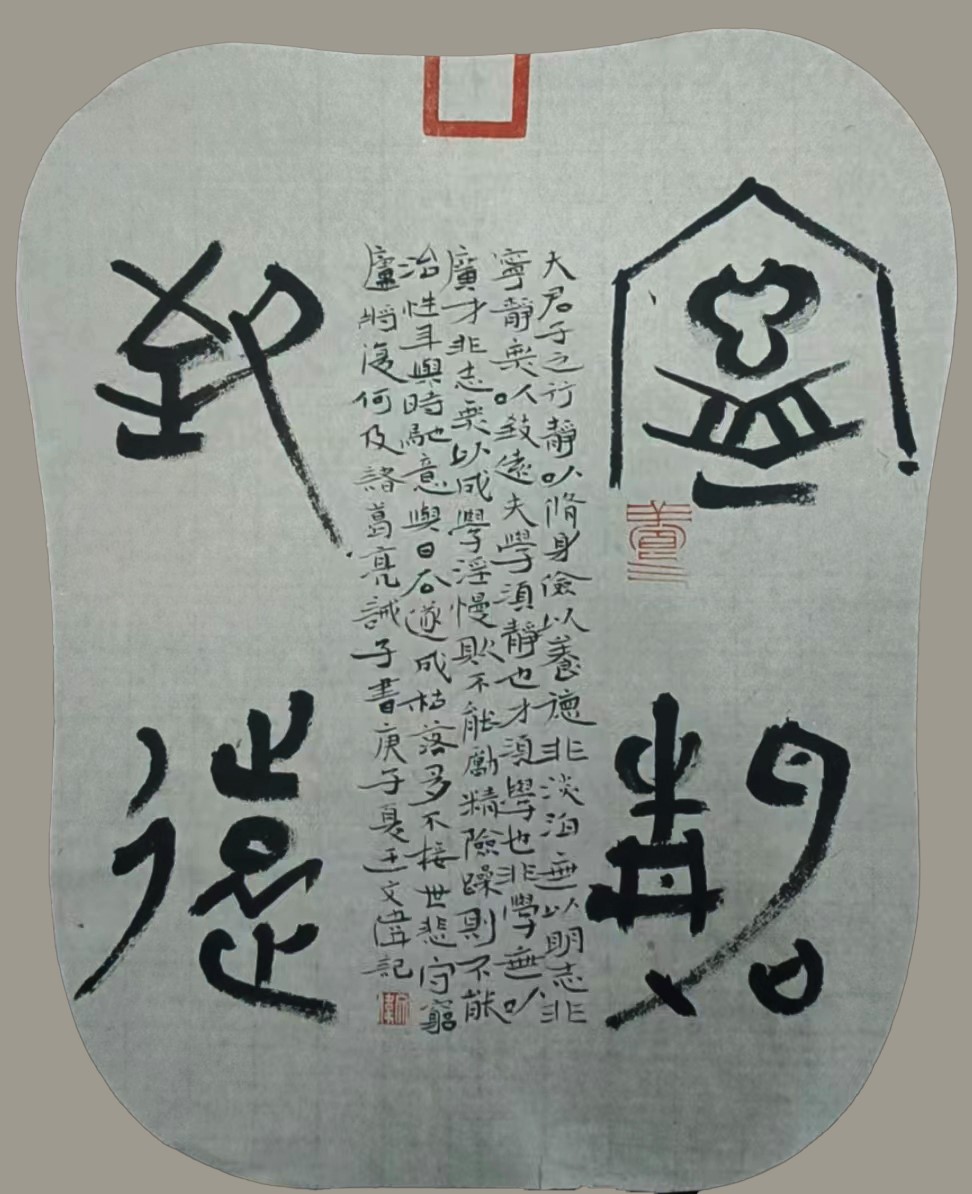 寧靜
夫君子之行靜以脩身儉以養德非淡泊無以明志非
寧靜無以致遠夫學須靜也才須學也非學無以
廣才非志無以成學淫慢則不能勵精險躁則不能
治性年與時馳意與日去遂成枯落多不接世悲守窮
廬將復何及諸葛亮誡子書庚子夏王文偉記
致遠